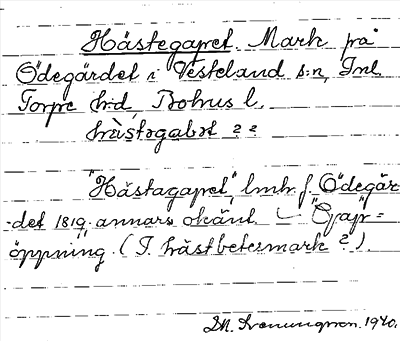 Hästegapet. Mark på
Ödegärdet i Västerland s:n, Inl.
Torpe h:d, Bohus l.
hästəgabət ??
"Hästagapet", lmhr f. Ödegär-
det 1819. annars okänt. "Gap" =
öppning. (I. hästbetesmark?).
1940.